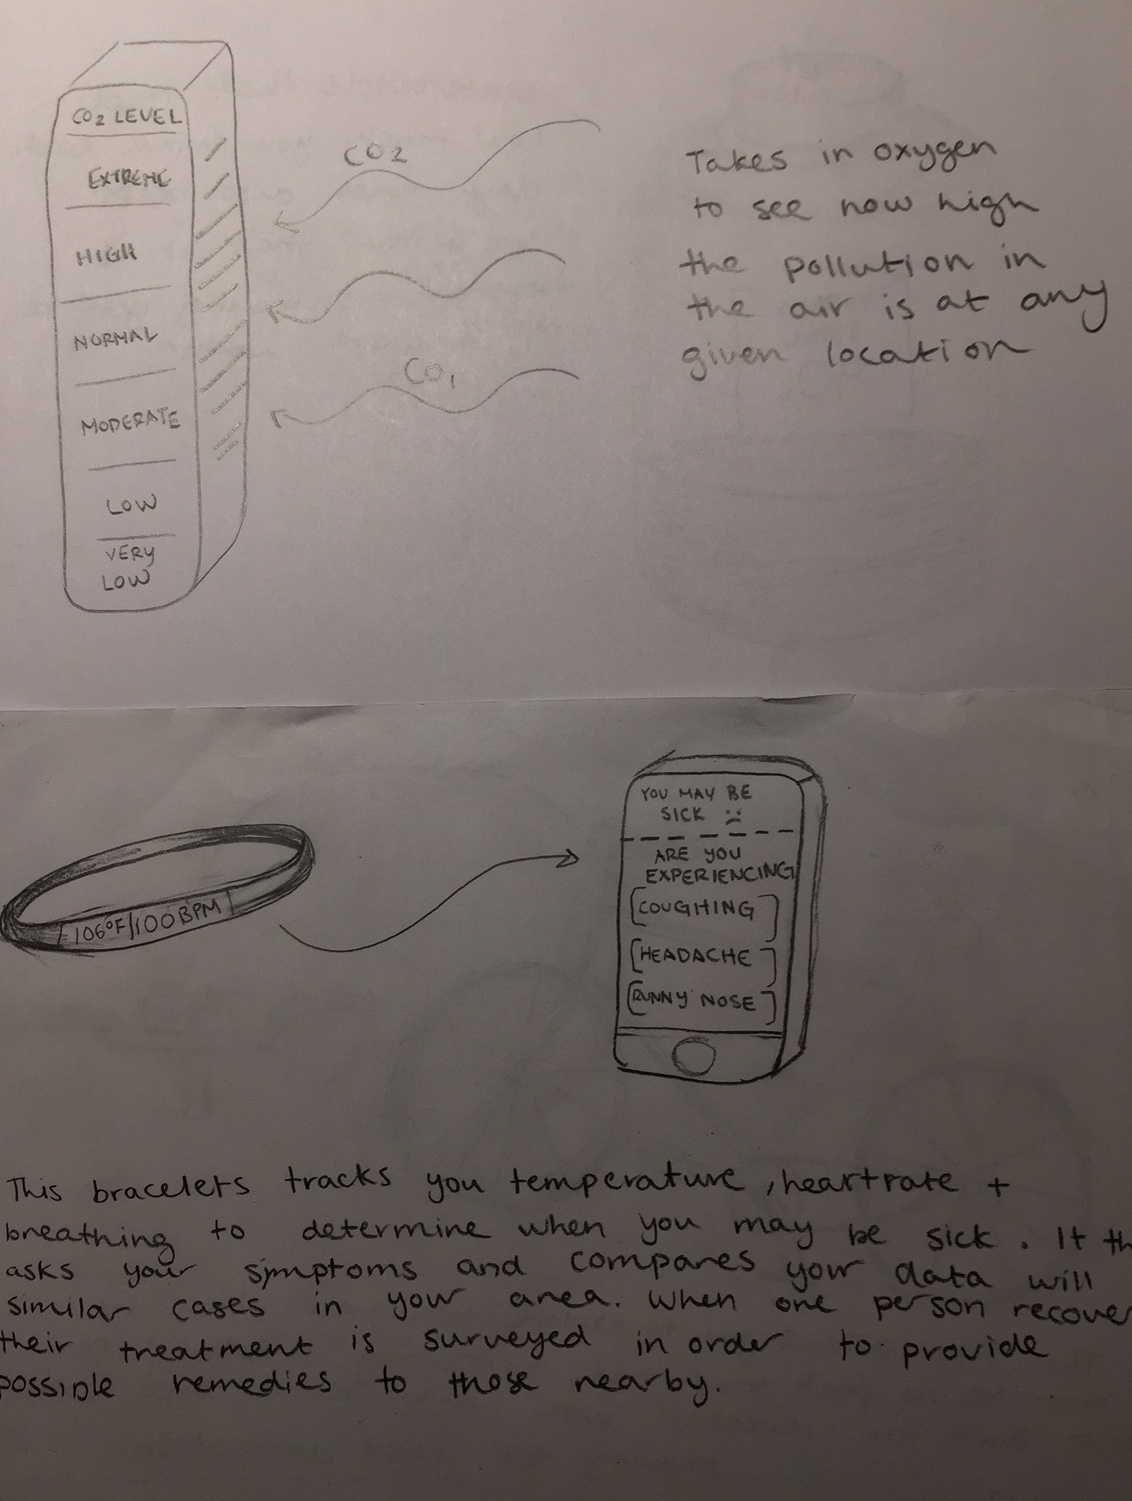 CO2 LEVEL
EXTREME
HIGH
NORMAL
MODERATE
LOW
VERY
LOW
CO2
CO1
Takes in oxygen
to see how high
the pollution in
the air is at any
given location
106°F/100BPM
YOU MAY BE
SICK :(
ARE YOU
EXPERIENCING
[COUGHING]
[HEADACHE]
[RUNNY NOSE]
This bracelets tracks you temperature, heartrate +
breathing to determine when you may be sick. It th
asks your symptoms and compares your data will
similar cases in your area. When one person recover
their treatment is surveyed in order to provide
possible remedies to those nearby.